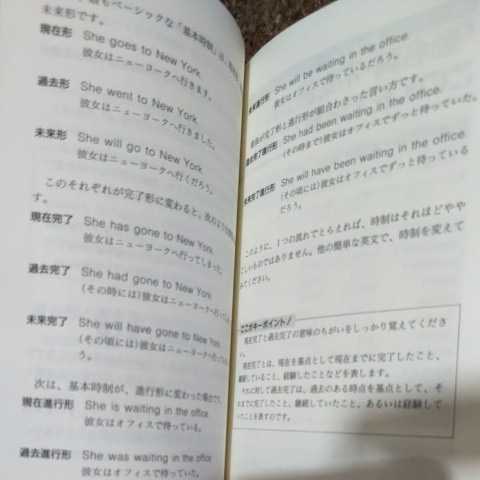 もベーシックな「基本時制」
未来形です。
現在形 She goes to New York.
彼女はニューヨークへ行きます。
過去形 She went to New York.
彼女はニューヨークへ行きました。
未来形 She will go to New York.
彼女はニューヨークへ行くだろう。
このそれぞれが完了形に変わると、次の
す。
現在完了 She has gone to New York.
彼女はニューヨークへ行ってしまった。
過去完了 She had gone to New York.
(その時には)彼女はニューヨークへ行って
た。
未来完了 She will have gone to New York.
(その頃には)彼女はニューヨークへ行って
う。
次は、基本時制が、進行形に変わった場合です。
現在進行形 She is waiting in the office.
彼女はオフィスで待っている。
過去進行形 She was waiting in the office
彼女はオフィスで待っていた。
未来進行形 She will be waiting in the office.
彼女はオフィスで待っているだろう。
完了形と進行形が組合わさった言い方です。
過去完了進行形 She had been waiting in the office.
(その時まで)彼女はオフィスでずっと待っていた。
未来完了進行形 She will have been waiting in the office.
(その頃には)彼女はオフィスでずっと待っている
だろう。
このように、1つの流れでとらえれば、時制はそれほどやや
こしいものではありません。他の簡単な英文で、時制を変えて
ここがキーポイント!
現在完了と過去完了の意味のちがいをしっかり覚えてくださ
い。
現在完了とは、現在を基点として現在までに完了したこと、
継続していること、経験したことなどを表します。
それに対して過去完了は、過去のある時点を基点として、そ
れまでに完了したこと、継続していたこと、あるいは経験して
いたことを表すのです。